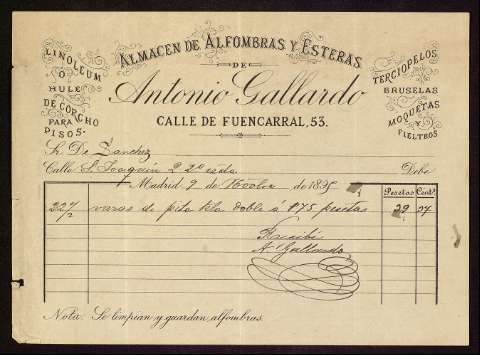 ALMACEN DE ALFOMBRAS Y ESTERAS
DE
Antonio Gallardo
CALLE DE FUENCARRAL, 53.
LINOLEUM
O
HULE
DE CORCHO
PARA
PISOS.
TERCIOPELOS
BRUSELAS
MOQUETAS
Y
FIELTROS
Sr. De Sanchez
Calle S. Joaquin 2 2º Debe
Madrid 9 de de 189
Pesetas Cents
22 1/2 varas de pita doble á 1'75 pesetas 39 37
Recibi
A. Gallardo
Nota: Se limpian y guardan alfombras.